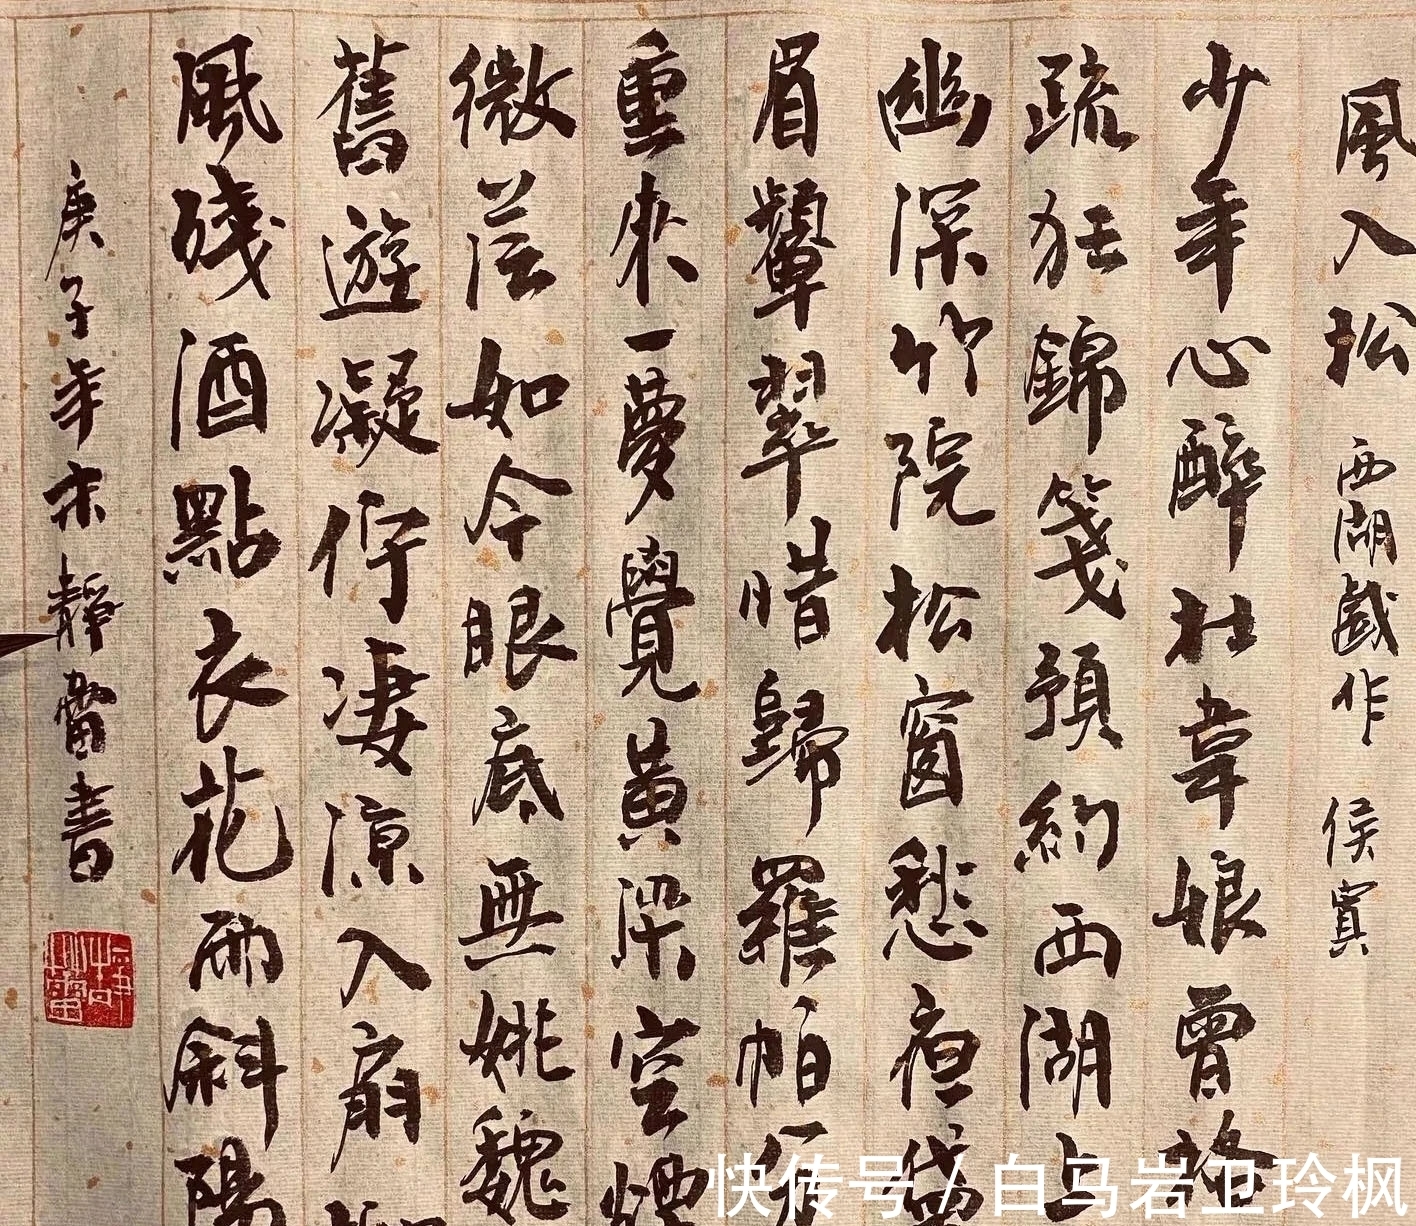 風入松 西湖戲作 侯寘
少年心醉杜韋娘曾格
疏狂錦箋預約西湖上
幽深竹院松窗愁夜黛
眉顰翠惜歸羅帕分
重來一夢覺黃梁空煙
微茫如今眼底無姚魏
舊遊凝佇淒涼入扇
風殘酒點衣花雨斜陽
庚子年宋靜當書
快传号 / 白马岩卫玲枫